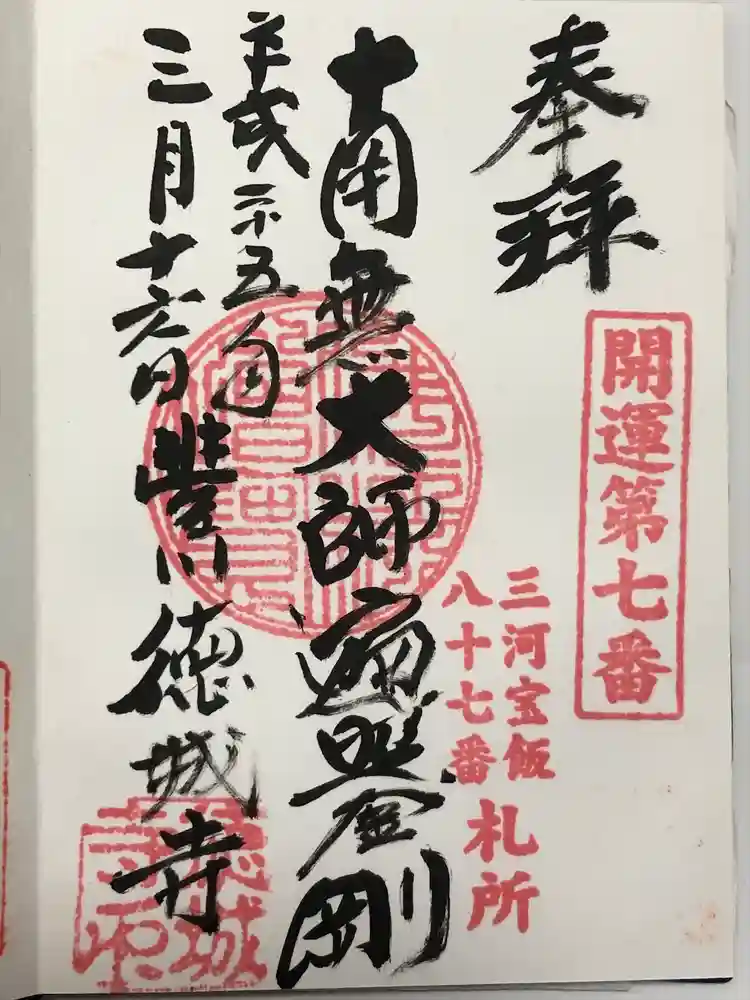 奉拝
開運第七番
三河宝飯
八十七番
札所
南無大師遍照金剛
平成二十五年
三月十六日 豊川 徳城寺